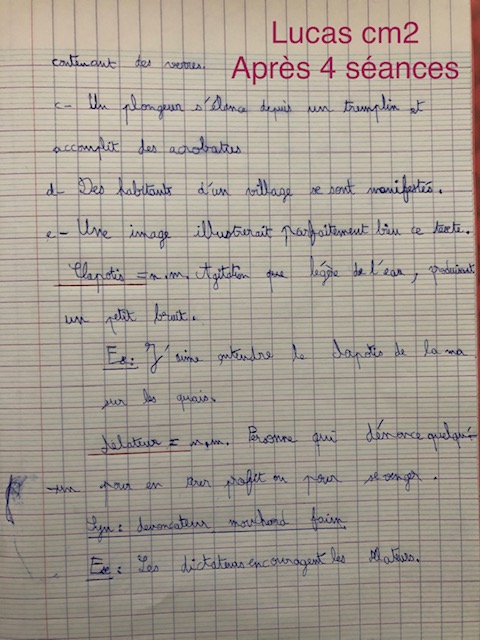 Lucas cm2
Après 4 séances
contenant des verres.
c- Un plongeur s'élance depuis un tremplin et
accomplit des acrobaties
d- Des habitants d'un village se sont manifestés.
e- Une image illustrerait parfaitement bien ce texte.
Clapotis = n.m. Agitation que légère de l'eau, produisant
un petit bruit.
Ex: J'aime entendre le clapotis de la ma
sur les quais.
délateur = n.m. Personne qui dénonce quelqu'
-un pour en profit ou pour se venger.
Syn: mouchard
Ex: Les dictateurs encouragent les délateurs.